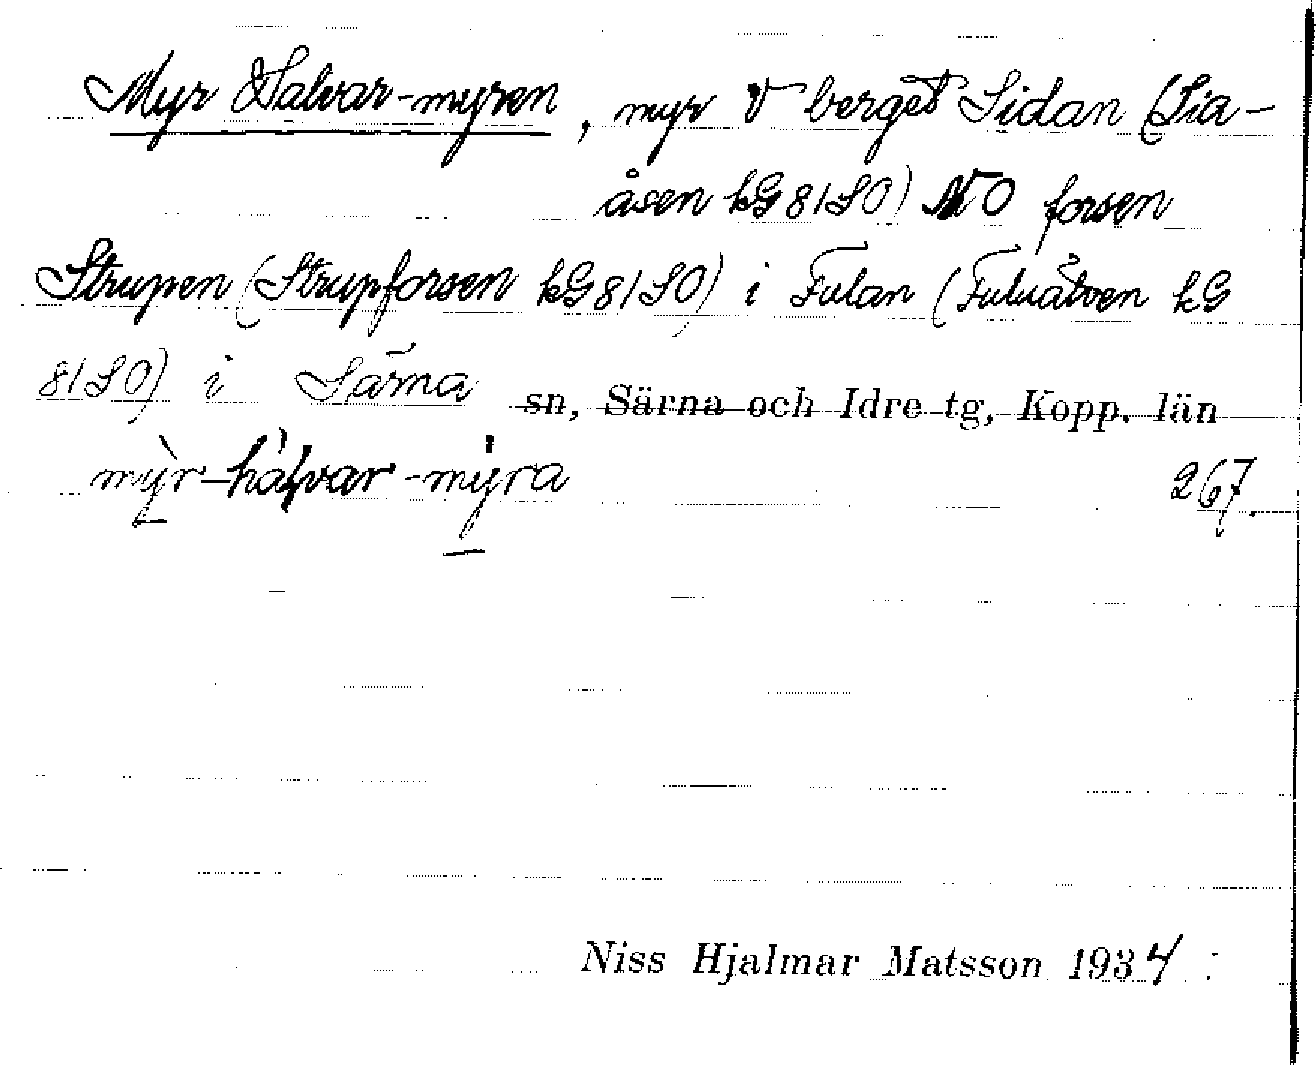 Myr Halvar-myren, myr V berget Sidan (Sia-
åsen kG 81SO) NO forsen
Strupen (Strupforsen kG 81 SO) i Fulan (Fuluälven kG
81 SO) i Särna sn, Särna och Idre tg, Kopp. län
mỳr-hàɫvar-mýra 267.
Niss Hjalmar Matsson 1934